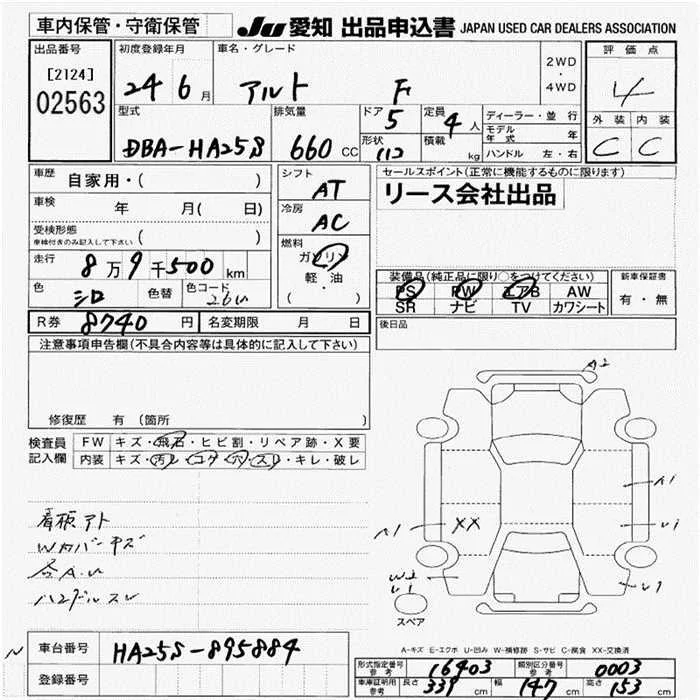 車内保管・守衛保管
JU 愛知 出品申込書 JAPAN USED CAR DEALERS ASSOCIATION
出品番号 [2124] 02563
初度登録年月 24 6月
車名・グレード アルト F
2WD ・ 4WD
評価点 4
外装 C 内装 C
型式 DBA-HA25S
排気量 660 cc
ドア 5
形状 112
定員 4人
積載 kg
ディーラー・並行
モデル年式 年
ハンドル 左・右
車歴 自家用・( )
車検 年 月( 日)
受検形態 ( )
車検付きのみ記入して下さい
走行 8万9千500km
色 シロ 色替 色コード 26U
シフト AT
冷房 AC
燃料 ガソリン
軽・油
( )
セールスポイント(正常に機能するものに限ります)
リース会社出品
装備品(純正品に限り○をつけてください)
PS PW エアB AW
SR ナビ TV カワシート
新車保証書 有・無
後日品
R券 8740円 名変期限 月 日
注意事項申告欄(不具合内容等は具体的に記入して下さい)
修復歴 有(箇所 )
検査員記入欄
FW キズ・飛石・ヒビ割・リペア跡・X要
内装 キズ・汚レ・コゲ・穴・スレ・キレ・破レ
看板アト
ハンドルスレ
A2
A1
U1
A1
XX
W2
U1
U1
スペア
A-キズ E-エクボ U-凹み W-補修跡 S-サビ C-腐食 XX-交換済
N
車台番号 HA25S-895884
登録番号
形式指定番号 参考 16403 類別区分番号 参考 0003
車庫証明用 参考 長さ 339cm 幅 147cm 高さ 153cm